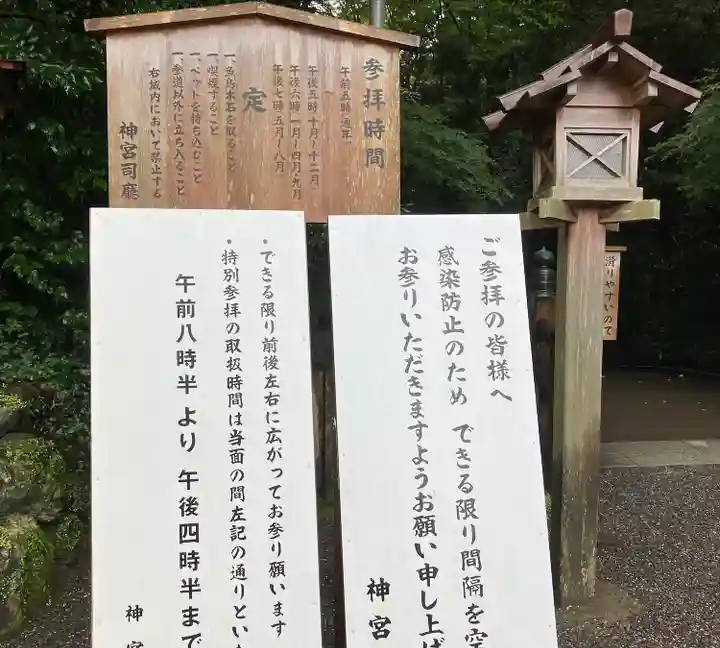 参拝時間
午前五時(通年)
〜
午後五時 十月〜十二月
午後六時 一月〜四月・九月
午後七時 五月〜八月
定
一、魚鳥木石を取ること
一、喫煙すること
一、ペットを持ち込むこと
一、参道以外に立ち入ること
右域内において禁止する
神宮司廳
滑りやすいので
ご参拝の皆様へ
感染防止のため できる限り間隔を空
お参りいただきますようお願い申し上げ
神宮
・できる限り前後左右に広がってお参り願います
・特別参拝の取扱時間は当面の間左記の通りといた
午前八時半 より 午後四時半まで
神宮